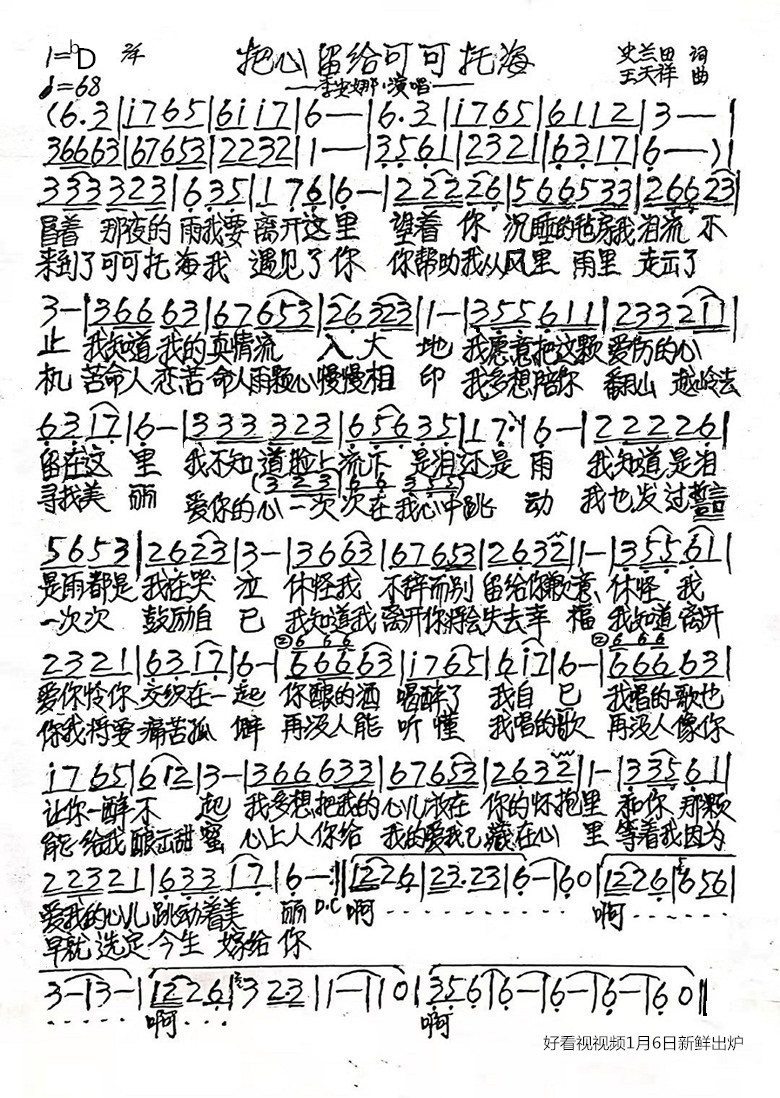 1=ᵇD 2/4 把心留给可可托海 史兰田 词
♩=68 ——李安娜·演唱—— 王天祥 曲
(6.3|i765|6i17|6——|6.3|i765|6112|3——|
36663|67653|2232|1——|3561|2321|6317|6——)|
333323|635|176|6—|222226|566533|26623|
冒着 那夜的 雨我要 离开这里 望着 你 沉睡的毡房我泪流 不
来到了可可托海我 遇见了你 你帮助我从风里 雨里 走出了
3—|36663|67653|26323|1—|355611|233211|
止 我知道 我的真情流 入 大 地 我愿意把这颗 爱伤的心
机 苦命人恋苦命人两颗心慢慢相 印 我多想陪你 翻山 越岭去
6317|6—|333323|65635|17·|6—|222226|
留在这 里 我不知道脸上流下 是泪还是雨 我知道是泪
(323 66 355)
寻找美 丽 爱你的心一次次在我心中跳 动 我也发过誓言
5653|2623|3—|3663|67653|2632|1—|35561|
是雨都是 我在哭 泣 休怪我 不辞而别 留给你歉意 休怪 我
一次次 鼓励自 己 我知道我 离开你将会失去幸 福 我知道离开
② 666 ② 666
2321|6317|6—|66663|i765|6i7|6—|66663|
爱你怜你 交织在一起 你酿的酒 喝醉了 我自 己 我唱的歌也
你我将受 痛苦孤 僻 再没人能 听 懂 我唱的歌 再没人像你
i765|612|3—|366633|67653|2632|1—|33561|
让你一醉不 起 我多想把我的心儿放在 你的怀抱里 和你 那颗
能给我酿出甜蜜 心上人你给 我的爱我已藏在心 里 等着我因为
22321|63317|6—:‖1226|23·23|6—|60|1226|656|
爱我的心儿跳动着美 丽 D.C 啊……… 啊……
早就 选定 今生 嫁给 你
3—|3—|1226|323|1—|10|356|6—|6—|6—|60‖
…… 啊… 啊
好看视视频1月6日新鲜出炉